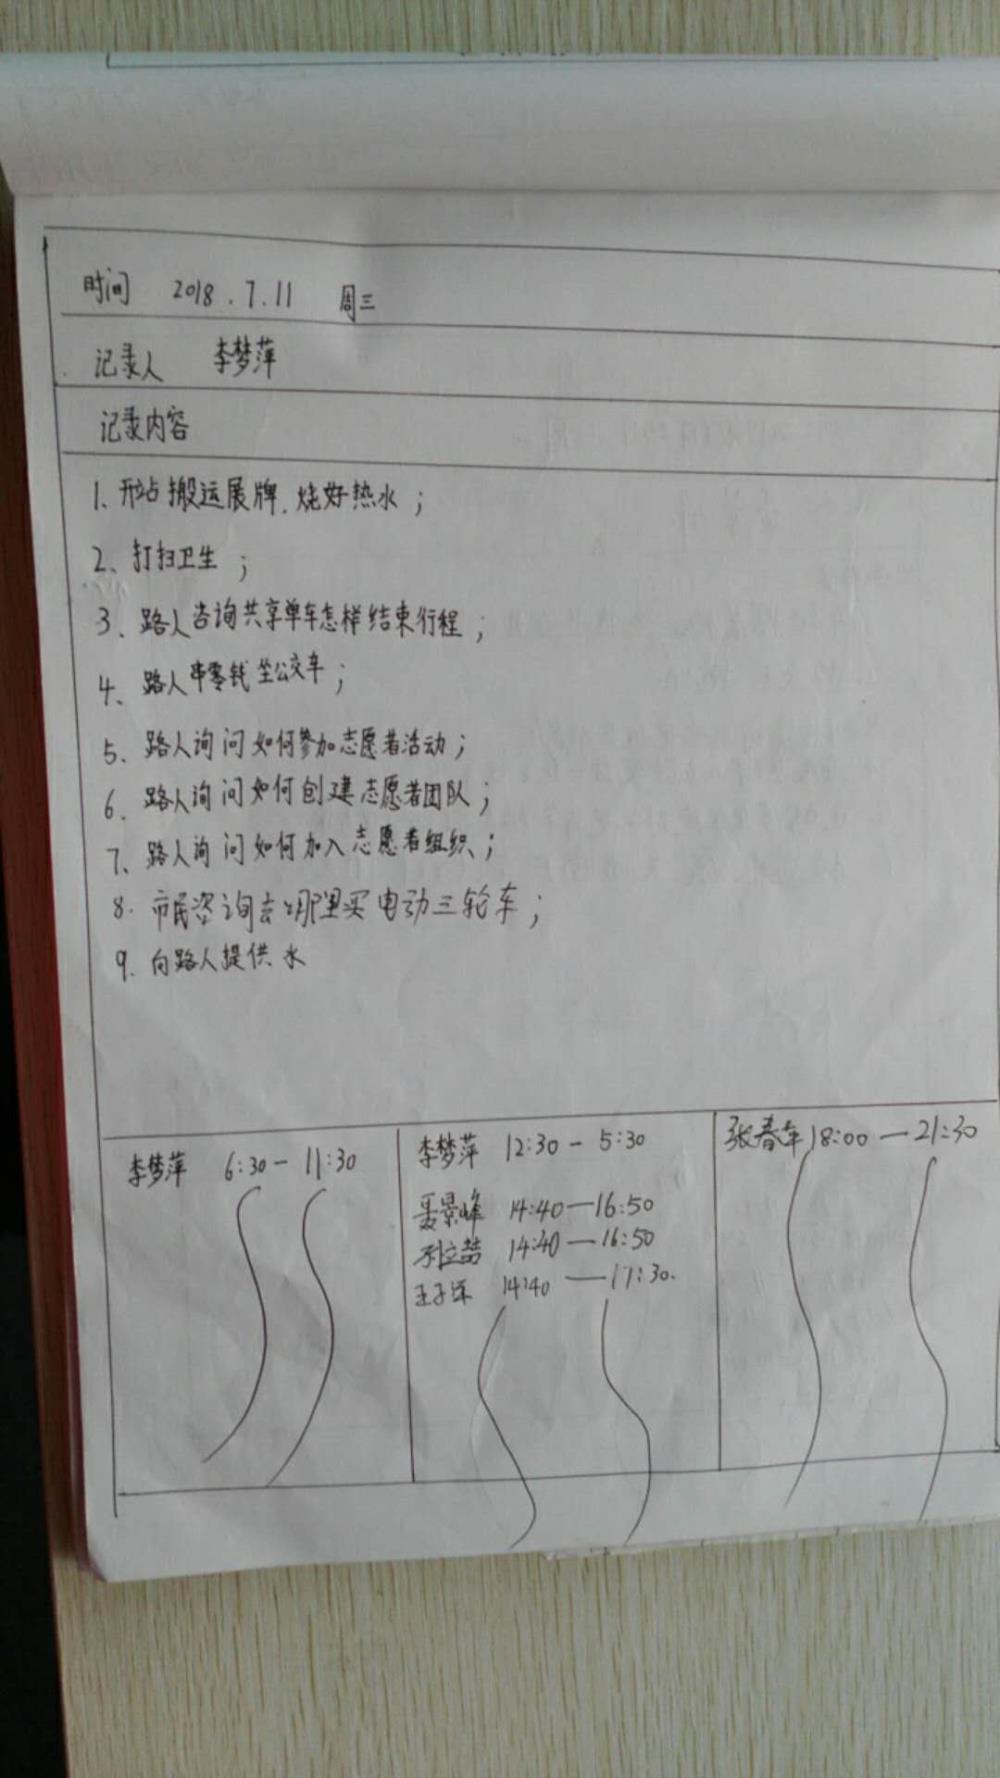 时间 2018.7.11 周三
记录人 李梦萍
记录内容
1、开站搬运展牌、烧好热水;
2、打扫卫生;
3、路人咨询共享单车怎样结束行程;
4、路人串零钱坐公交车;
5、路人询问如何参加志愿者活动;
6、路人询问如何创建志愿者团队;
7、路人询问如何加入志愿者组织;
8.市民咨询去哪里买电动三轮车;
9.向路人提供水
李梦萍 6:30-11:30
李梦萍 12:30-5:30
聂景峰 14:40—16:50
14:40—16:50
14:40—17:30.
张春年 18:00—21:30